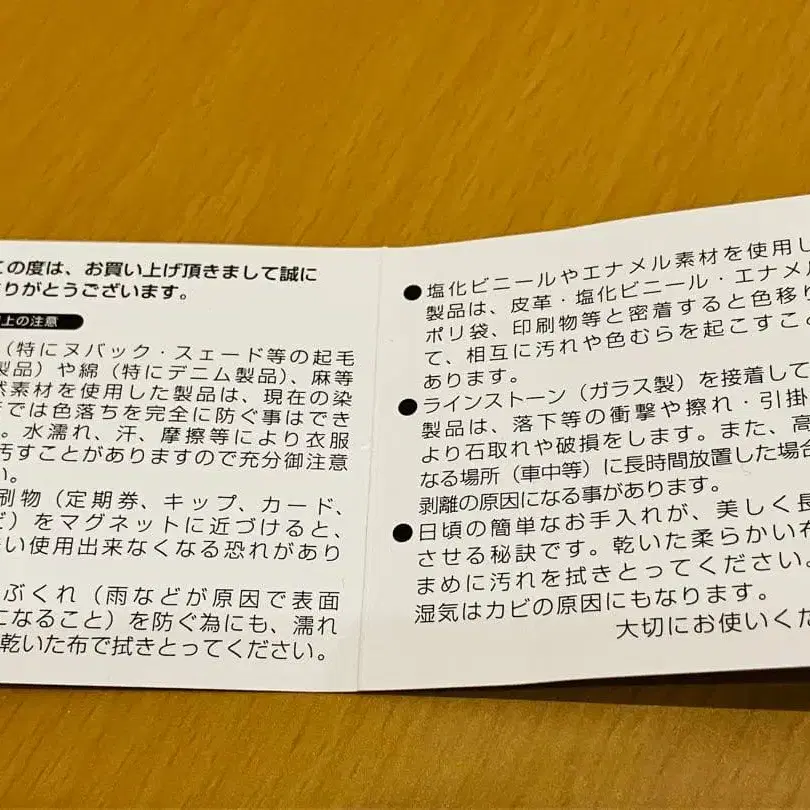 の度は、お買い上げ頂きまして誠に
りがとうございます。
上の注意
（特にヌバック・スェード等の起毛
製品）や綿（特にデニム製品）、麻等
然素材を使用した製品は、現在の染
では色落ちを完全に防ぐ事はでき
。水濡れ、汗、摩擦等により衣服
汚すことがありますので充分御注意
い。
刷物（定期券、キップ、カード、
ど）をマグネットに近づけると、
い使用出来なくなる恐れがあり
ぶくれ（雨などが原因で表面
になること）を防ぐ為にも、濡れ
乾いた布で拭きとってください。
●塩化ビニールやエナメル素材を使用し
製品は、皮革・塩化ビニール・エナメル
ポリ袋、印刷物等と密着すると色移り
て、相互に汚れや色むらを起こすこ
あります。
●ラインストーン（ガラス製）を接着して
製品は、落下等の衝撃や擦れ・引掛
より石取れや破損をします。また、高
なる場所（車中等）に長時間放置した場合
剥離の原因になる事があります。
●日頃の簡単なお手入れが、美しく長
させる秘訣です。乾いた柔らかい布
まめに汚れを拭きとってください。
湿気はカビの原因にもなります。
大切にお使いくだ